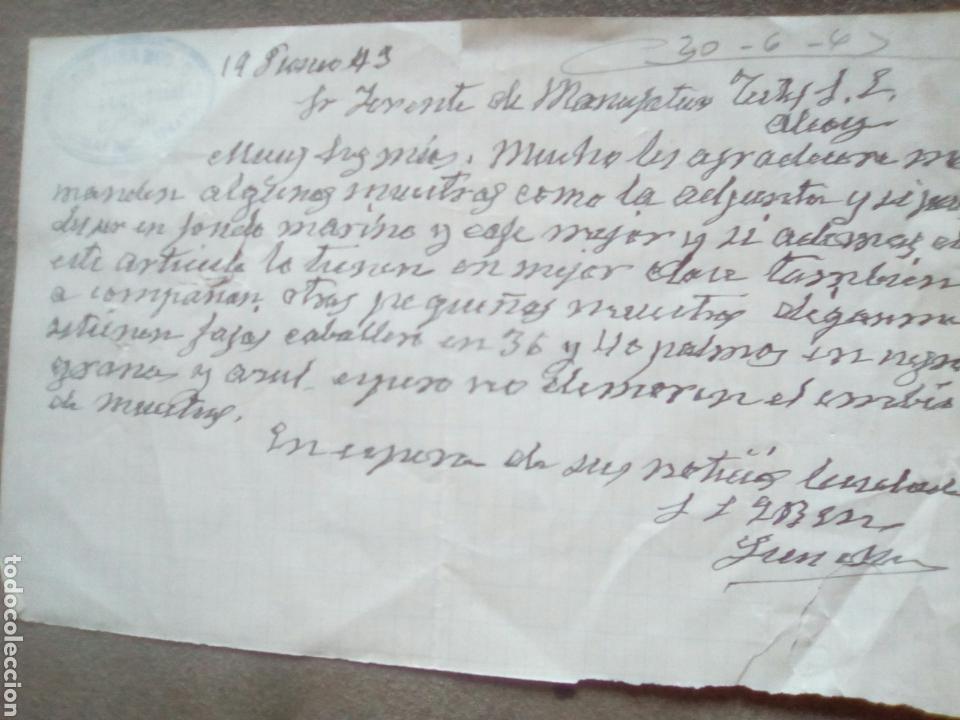 19 Junio 43
30-6-4
Sr Jerente de Manufatura S. L.
Alcoy
Muy Sres mios. Mucho les agradecere me
manden algunos muestras como la adjunta y si
en fondo marino y cafe mejor y si ademas
este articulo lo tienen en mejor clace tambien
a compañan otras pequeñas muestras diganme
si tienen fajas caballero en 36 y 40 palmos en negro
grana y azul espero no demoren el embio
de muestras.
En espera de sus noticias
todocoleccion